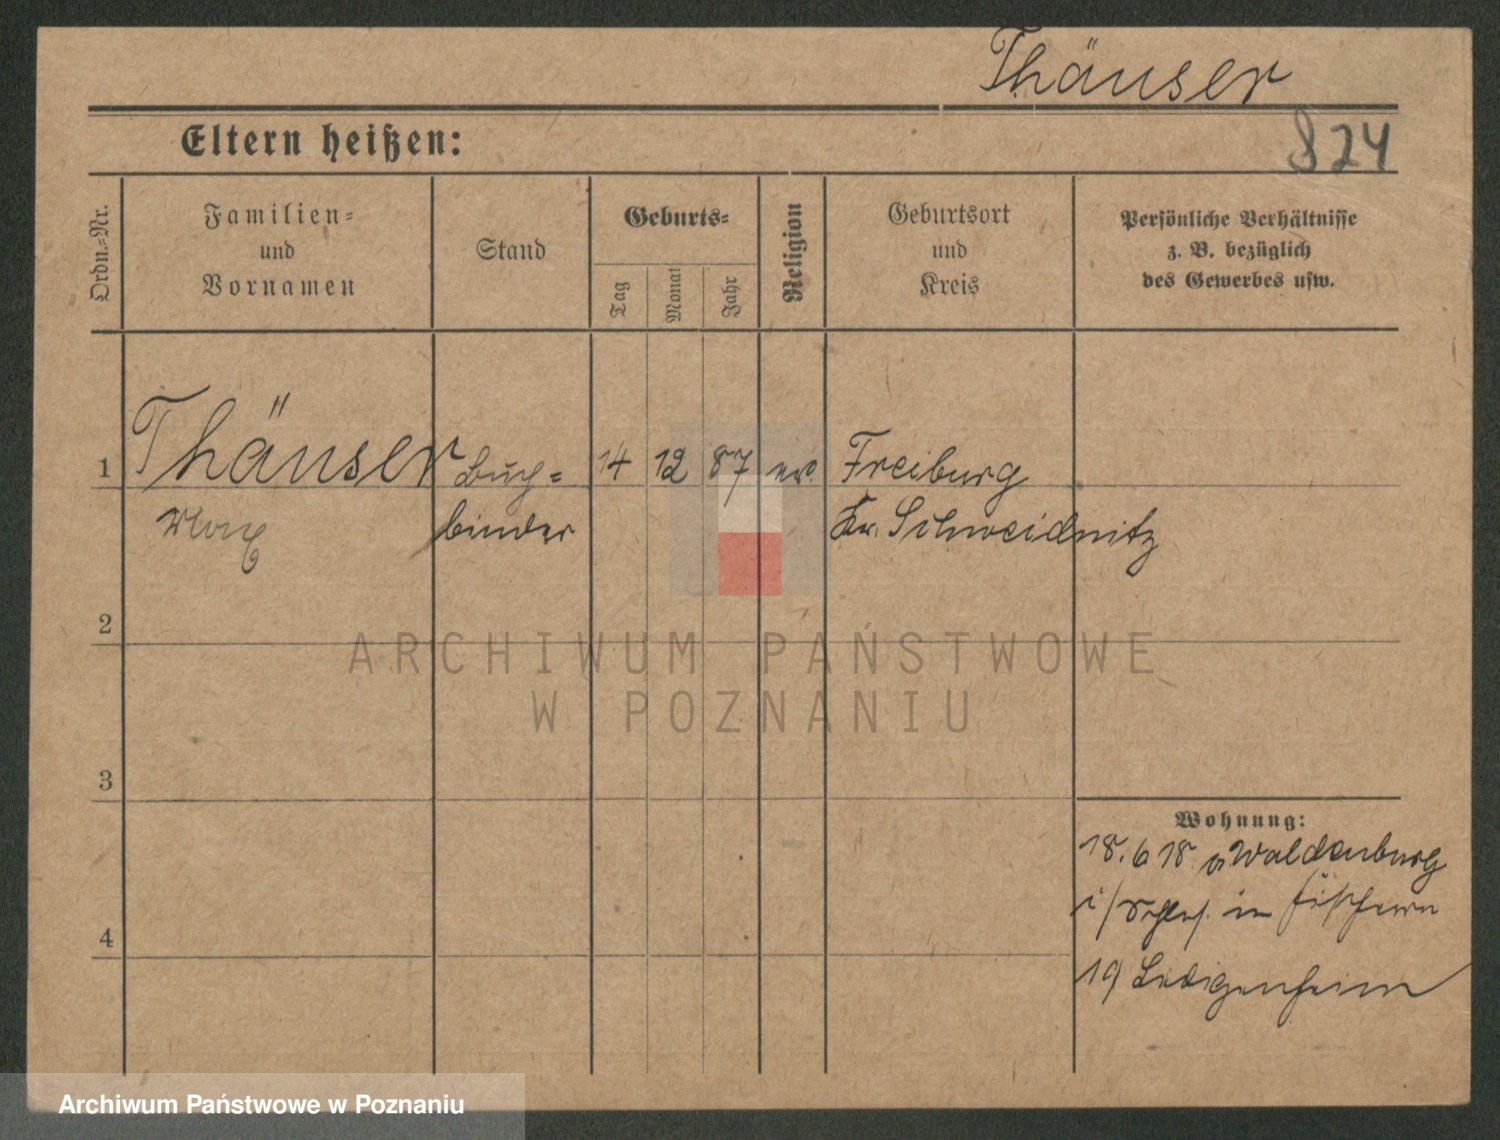 Thäuser
824
Eltern heißen:
Ordn.=Nr.
Familien=
und
Vornamen
Stand
Geburts=
Tag
Monat
Jahr
Religion
Geburtsort
und
Kreis
Persönliche Verhältnisse
z. B. bezüglich
des Gewerbes usw.
1 Thäuser Buch= 14 12 87 ev. Freiburg
Max binder Kr. Schweidnitz
2
3
4
Wohnung:
18. 6 18 Waldenburg
i/Schles. in
19 Ledigenheim
ARCHIWUM PAŃSTWOWE
W POZNANIU
Archiwum Państwowe w Poznaniu